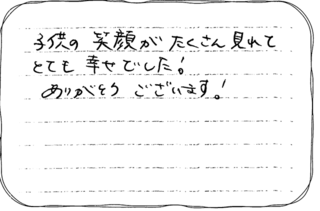 子供の 笑顔が たくさん見れて
とても 幸せでした!
ありがとう ございます!